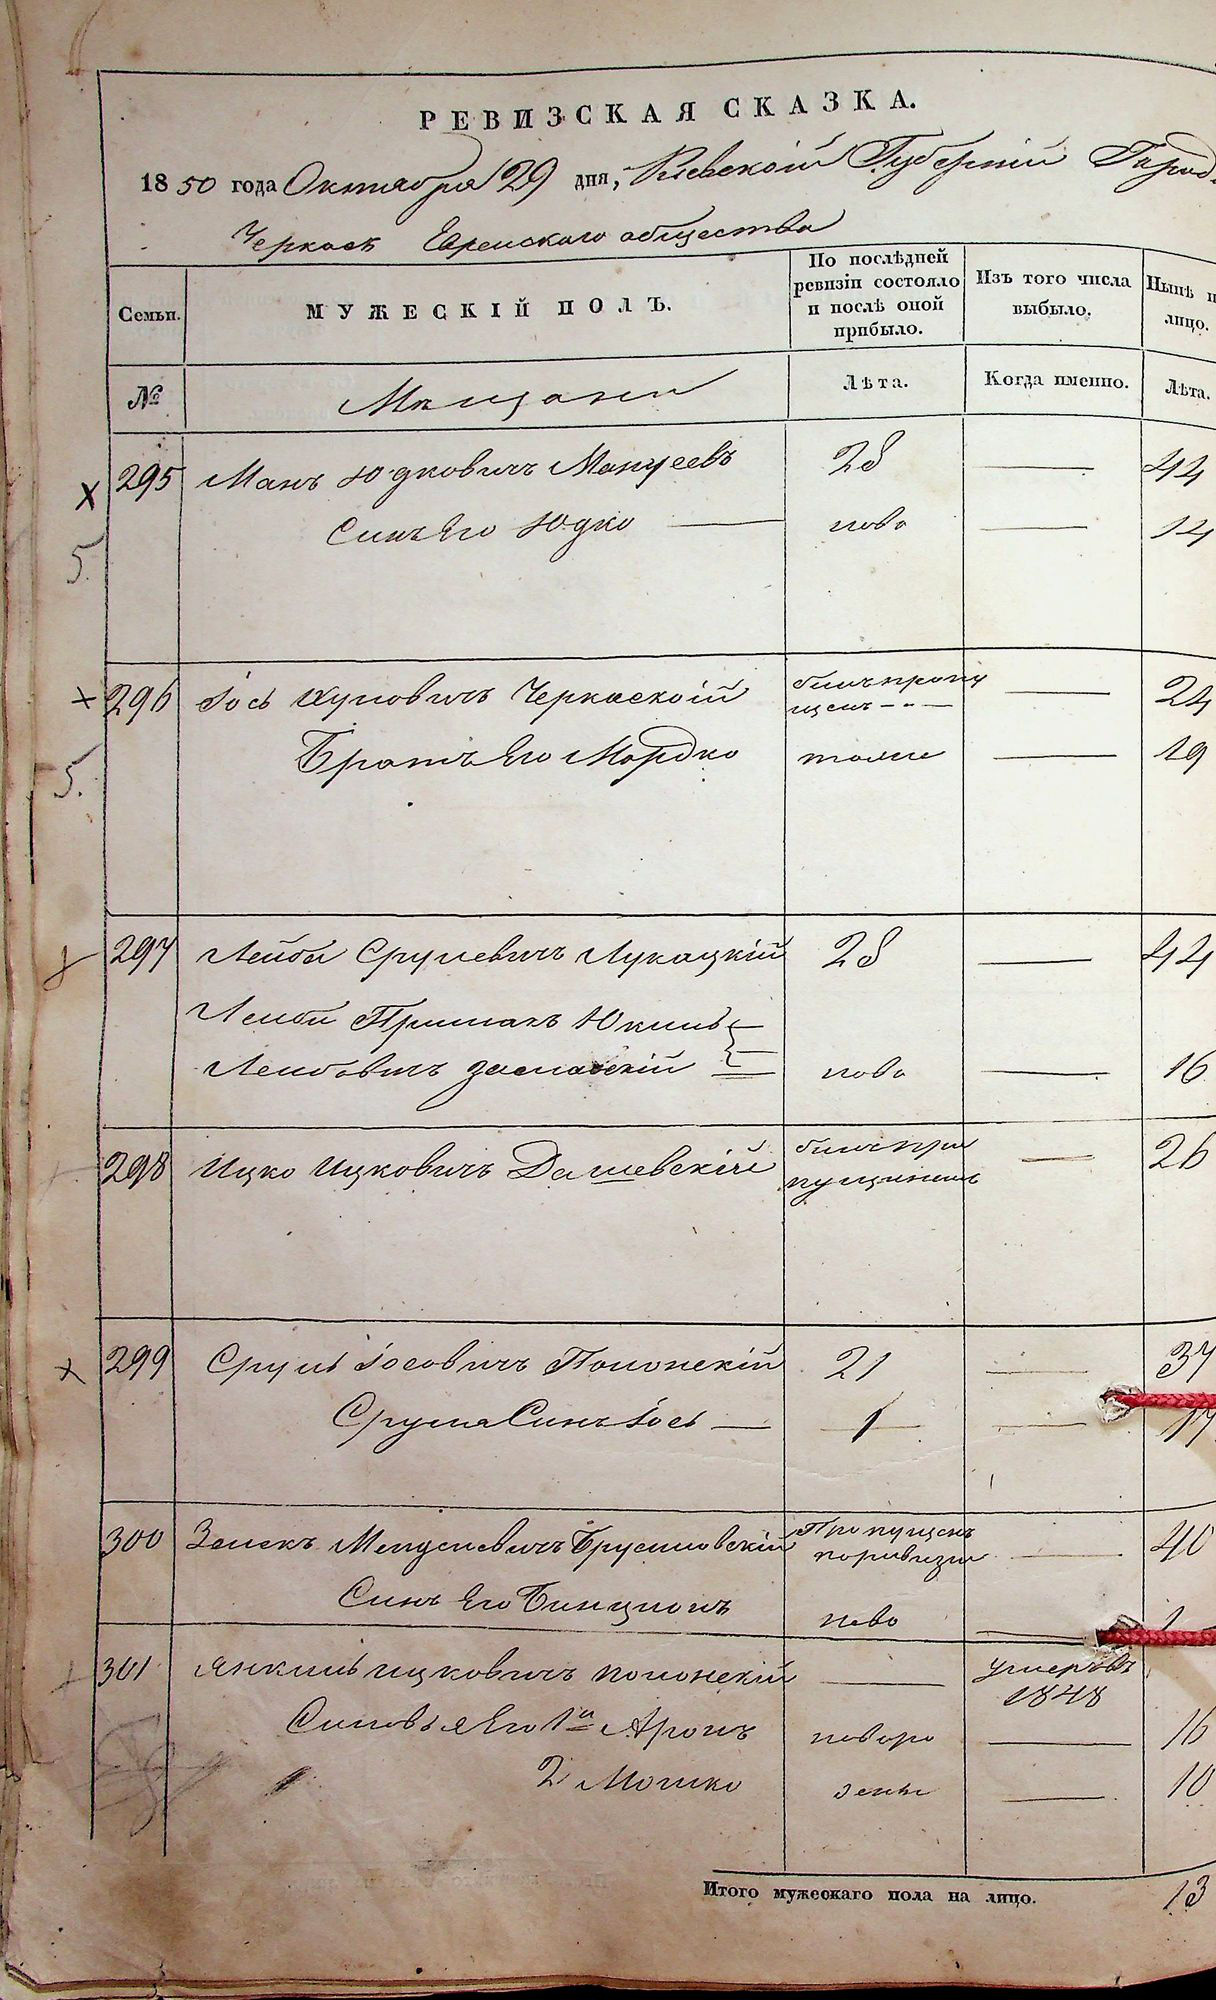 РЕВИЗСКАЯ СКАЗКА.
1850 года Октября 29 дня, Киевской Губерніи Город
Черкасъ Евреискаго общества
Семьи. МУЖЕСКІЙ ПОЛЪ. По послѣдней ревизіи состояло и послѣ оной прибыло. Изъ того числа выбыло. Нынѣ н лицо.
№ Мещани Лѣта. Когда именно. Лѣта.
295 Манъ Юдковичъ Манусевъ 28 — 44
Синъ Его Юдко — ново — 14
5.
296 Іось Хуновичъ Черкаскій билъ пропу
щенъ — 24
Братъ Его Мордко тоже — 19
5.
297 Лейба Срулевичъ Лукацкій 28 — 44
Лейби Примакъ Юкиль
Лейбовичъ Заславскій ново — 16
298 Ицко Ицковичъ Дашевскій билъ про
пущинъ — 26
299 Сруль Іосовичъ Полонскій 21 — 37
Сруля Синъ Іось — 1 — 17
300 Зелекъ Менделевичъ Бруслиовскій Пропущенъ
поревизіи — 40
Синъ Его Бенционъ ново — 1
301 Янкиль Ицковичъ Полонскій — умеръ въ
1848
Синовья Его 1й Аронъ новоро — 16
2 Мошко жены — 10
Итого мужескаго пола на лицо. 13